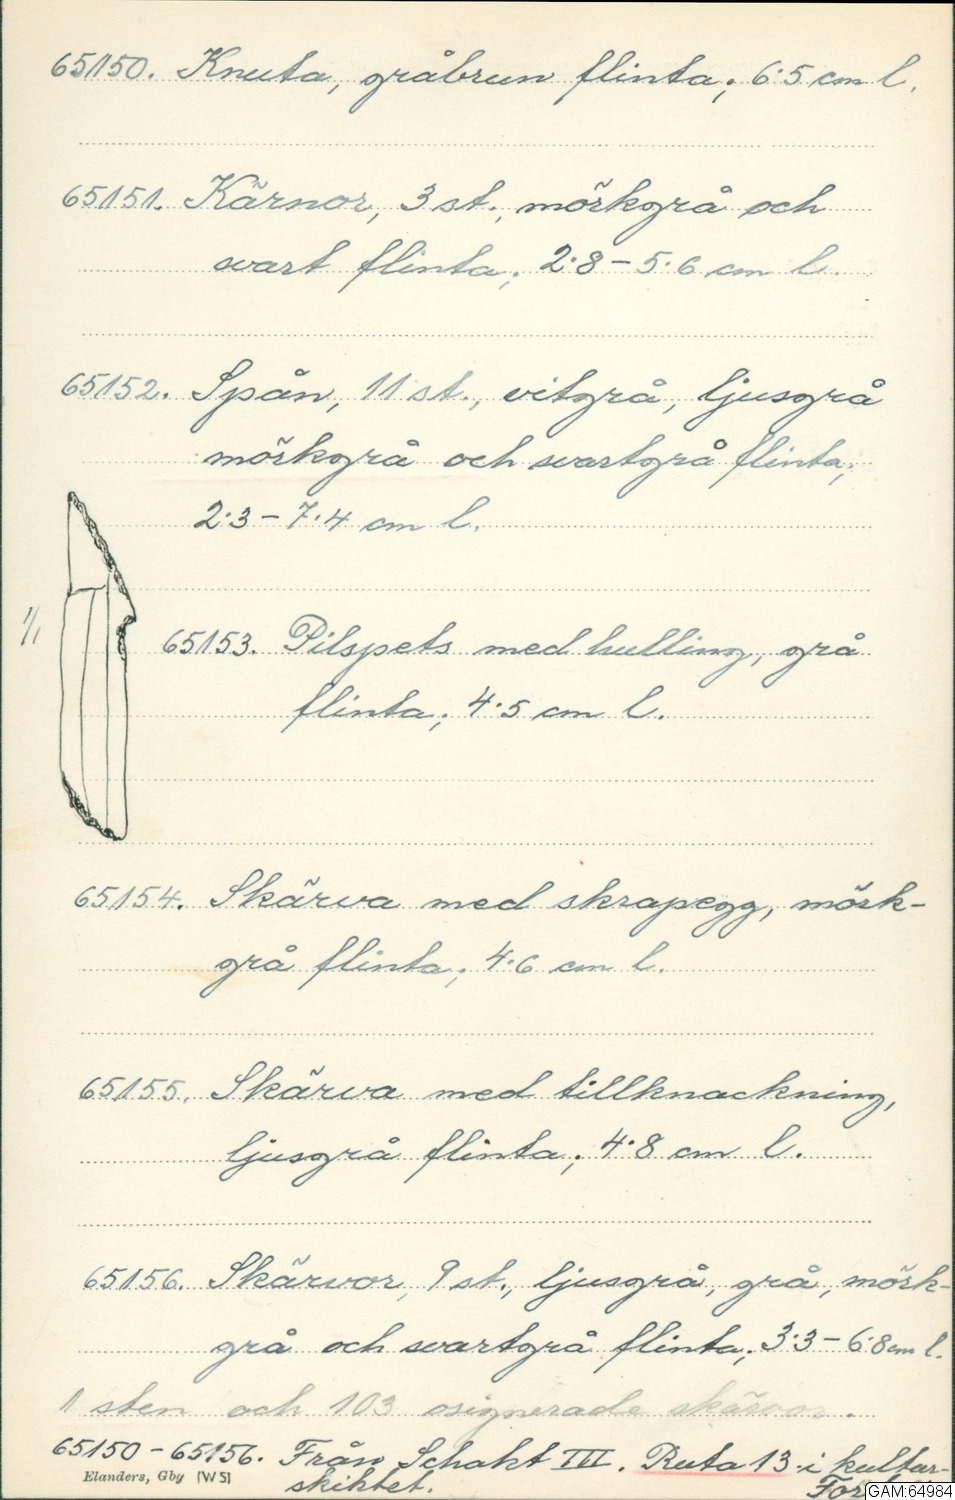 65150. Knuta, gråbrun flinta; 6.5 cm l.
65151. Kärnor, 3 st., mörkgrå och
svart flinta; 2.8 – 5.6 cm l.
65152. Spån, 11 st., vitgrå, ljusgrå
mörkgrå och svartgrå flinta;
2.3 – 7.4 cm l.
1/1
65153. Pilspets med hulling, grå
flinta; 4.5 cm l.
65154. Skärva med skrapegg, mörk-
grå flinta; 4.6 cm l.
65155. Skärva med tillknackning,
ljusgrå flinta; 4.8 cm l.
65156. Skärvor, 9 st., ljusgrå, grå, mörk-
grå och svartgrå flinta; 3.3 – 6.8 cm l.
1 sten och 103 osignerade skärvor.
65150 – 65156. Från Schakt III. Ruta 13 i kultur-
skiktet.
Elanders, Gbg [W5]
GAM:64984